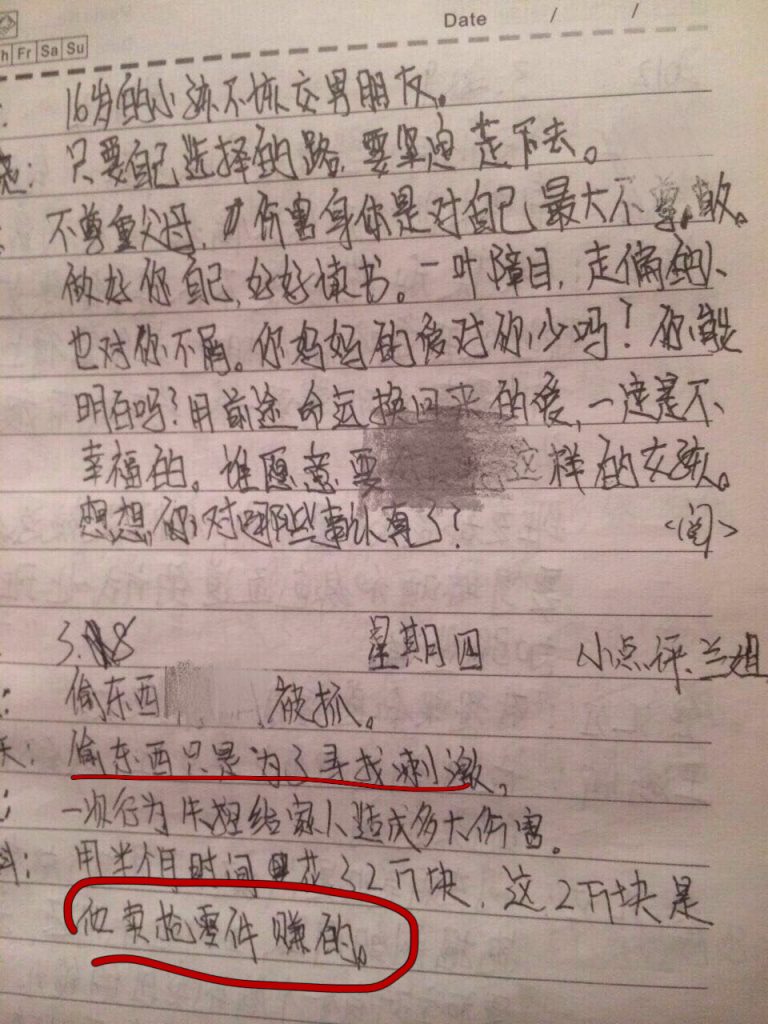 Date / /
h Fr Sa Su
: 16岁的小孩不该交男朋友。
: 只要自己选择的路,要坚定走下去。
: 不尊重父母,伤害身体是对自己最大不尊敬。
做好你自己,好好读书。一叶障目,走偏的人
也对你不屑。你妈妈的爱对你少吗?你能
明白吗?用前途命运换回来的爱,一定是不
幸福的。谁愿意要 这样的女孩。
想想,你对哪些事认真了? <阅>
3.18 星期四 小点评、兰姐
: 偷东西 被抓。
: 偷东西只是为了寻找刺激,
: 一次行为失控给家人造成多大伤害。
: 用半个月时间花了2万块,这2万块是
他卖枪零件赚的。